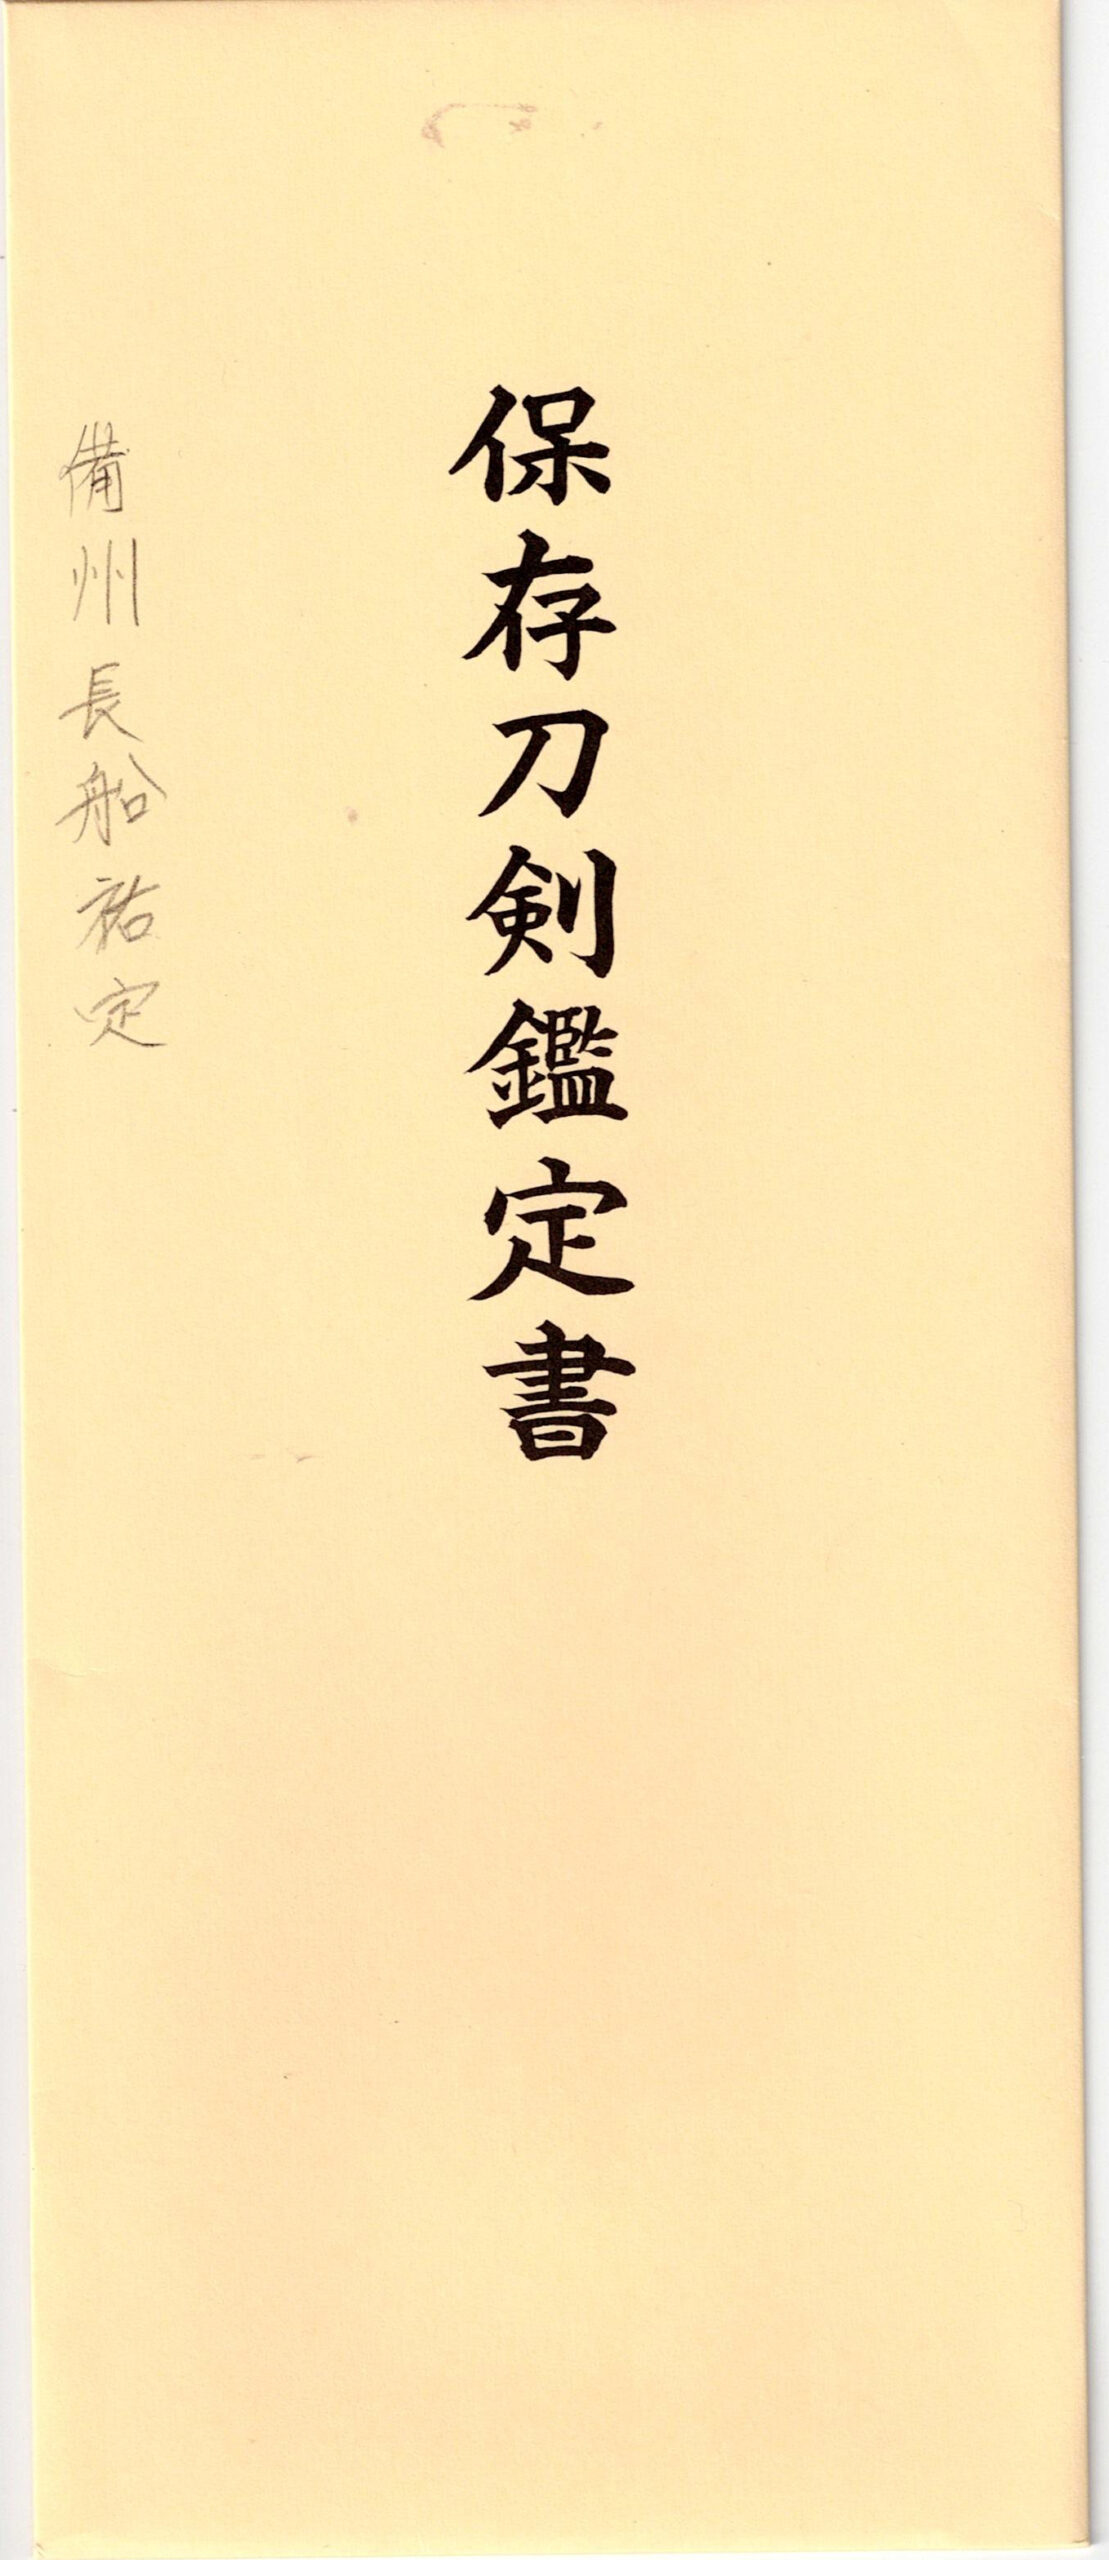 保存刀剣鑑定書
備州長船祐定